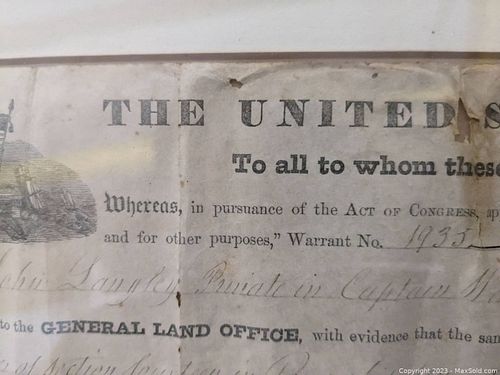 THE UNITED S
To all to whom these
Whereas, in pursuance of the ACT OF CONGRESS, ap
and for other purposes," Warrant No. 1935
John Langley Private in Captain W.
to the GENERAL LAND OFFICE, with evidence that the sam
of section
Copyright 2023 - MaxSold.com